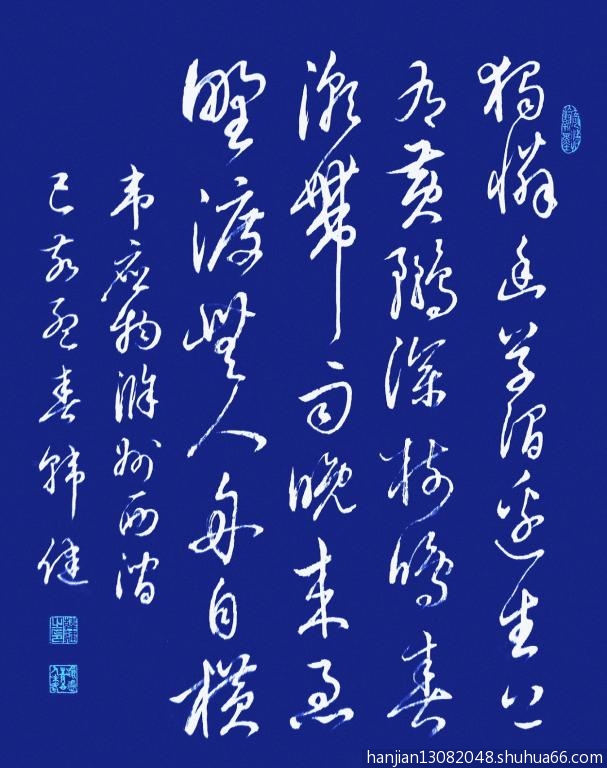 獨憐幽草澗邊生上
有黄鸝深樹鳴春
潮帶雨晚来急
野渡無人舟自横
韦应物滁州西澗
己亥孟春韩健
hanjian13082048.shuhua66.com